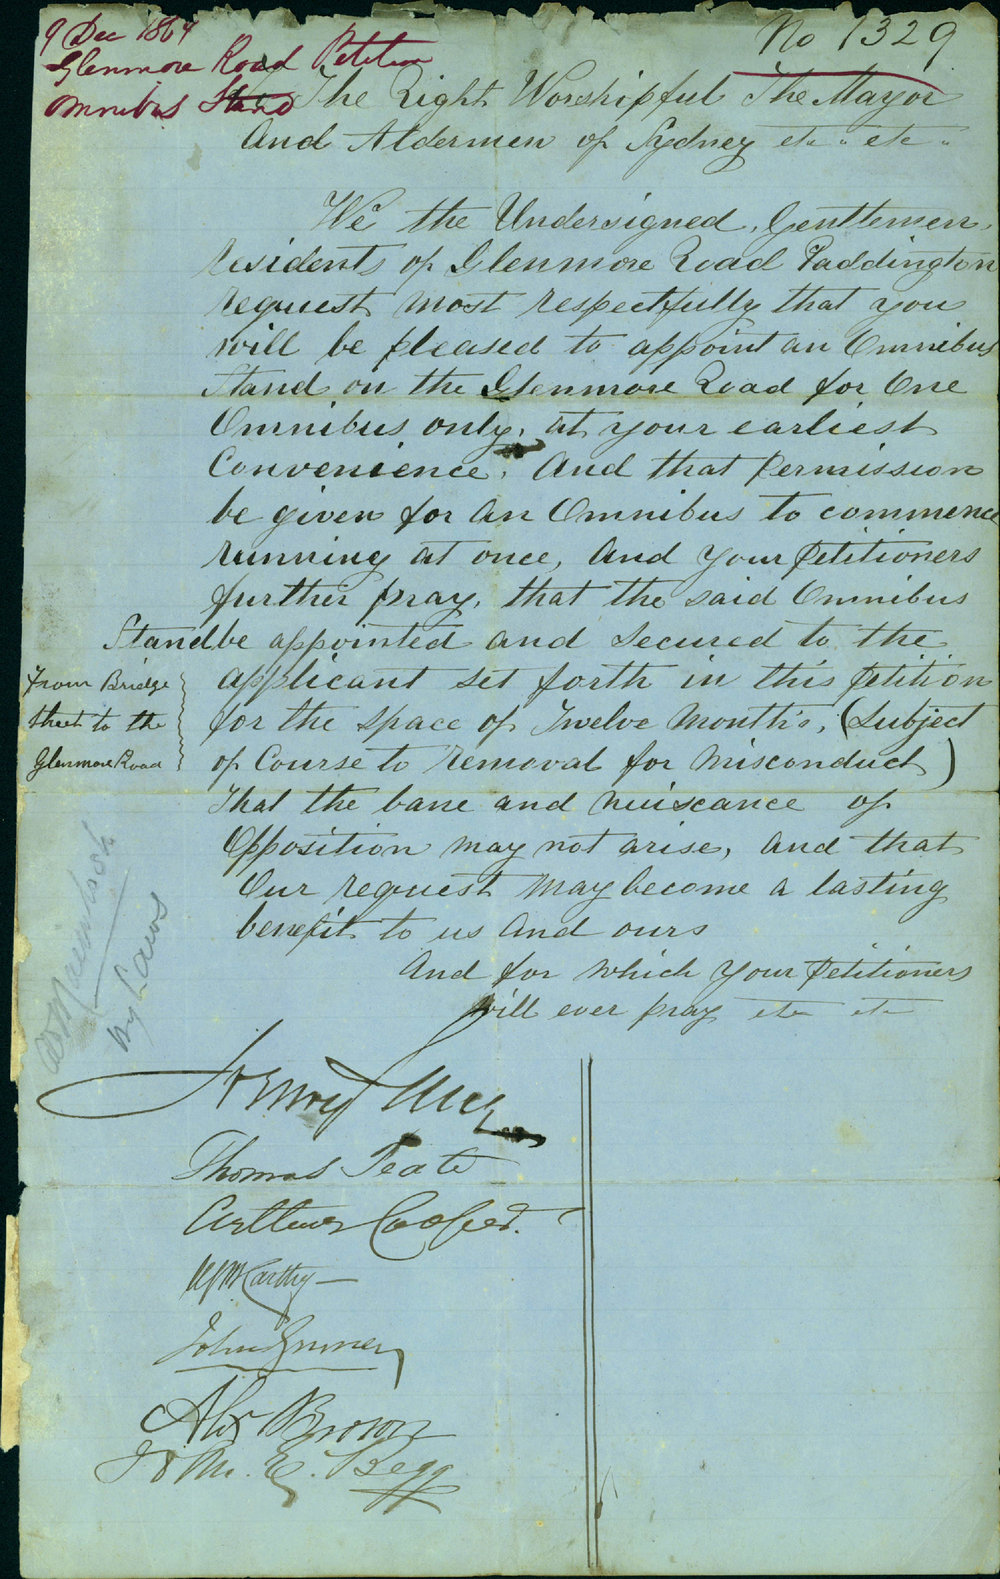 9 Dec 1864
Glenmore Road Petition
Omnibus Stand
No 1329
To The Right Worshipful The Mayor
And Aldermen of Sydney etc " etc "
We the Undersigned, Gentlemen,
residents of Glenmore Road Paddington
request most respectfully that you
will be pleased to appoint an Omnibus
Stand on the Glenmore Road for One
Omnibus only, at your earliest
Convenience, And that permission
be given for an Omnibus to commence
running at once, And your Petitioners
further pray, that the said Omnibus
Stand be appointed and secured to the
applicant set forth in this petition
From Bridge
street to the
Glenmore Road
for the space of Twelve Months, (Subject
of Course to removal for Misconduct)
That the bane and nuiscance of
Opposition may not arise, And that
Our request may become a lasting
benefit to us And ours
And for which your Petitioners
will ever pray etc etc
Thomas Peate
Arthur Cooper
McCarthy
John
Alex Brown
Jo M. E. Begg